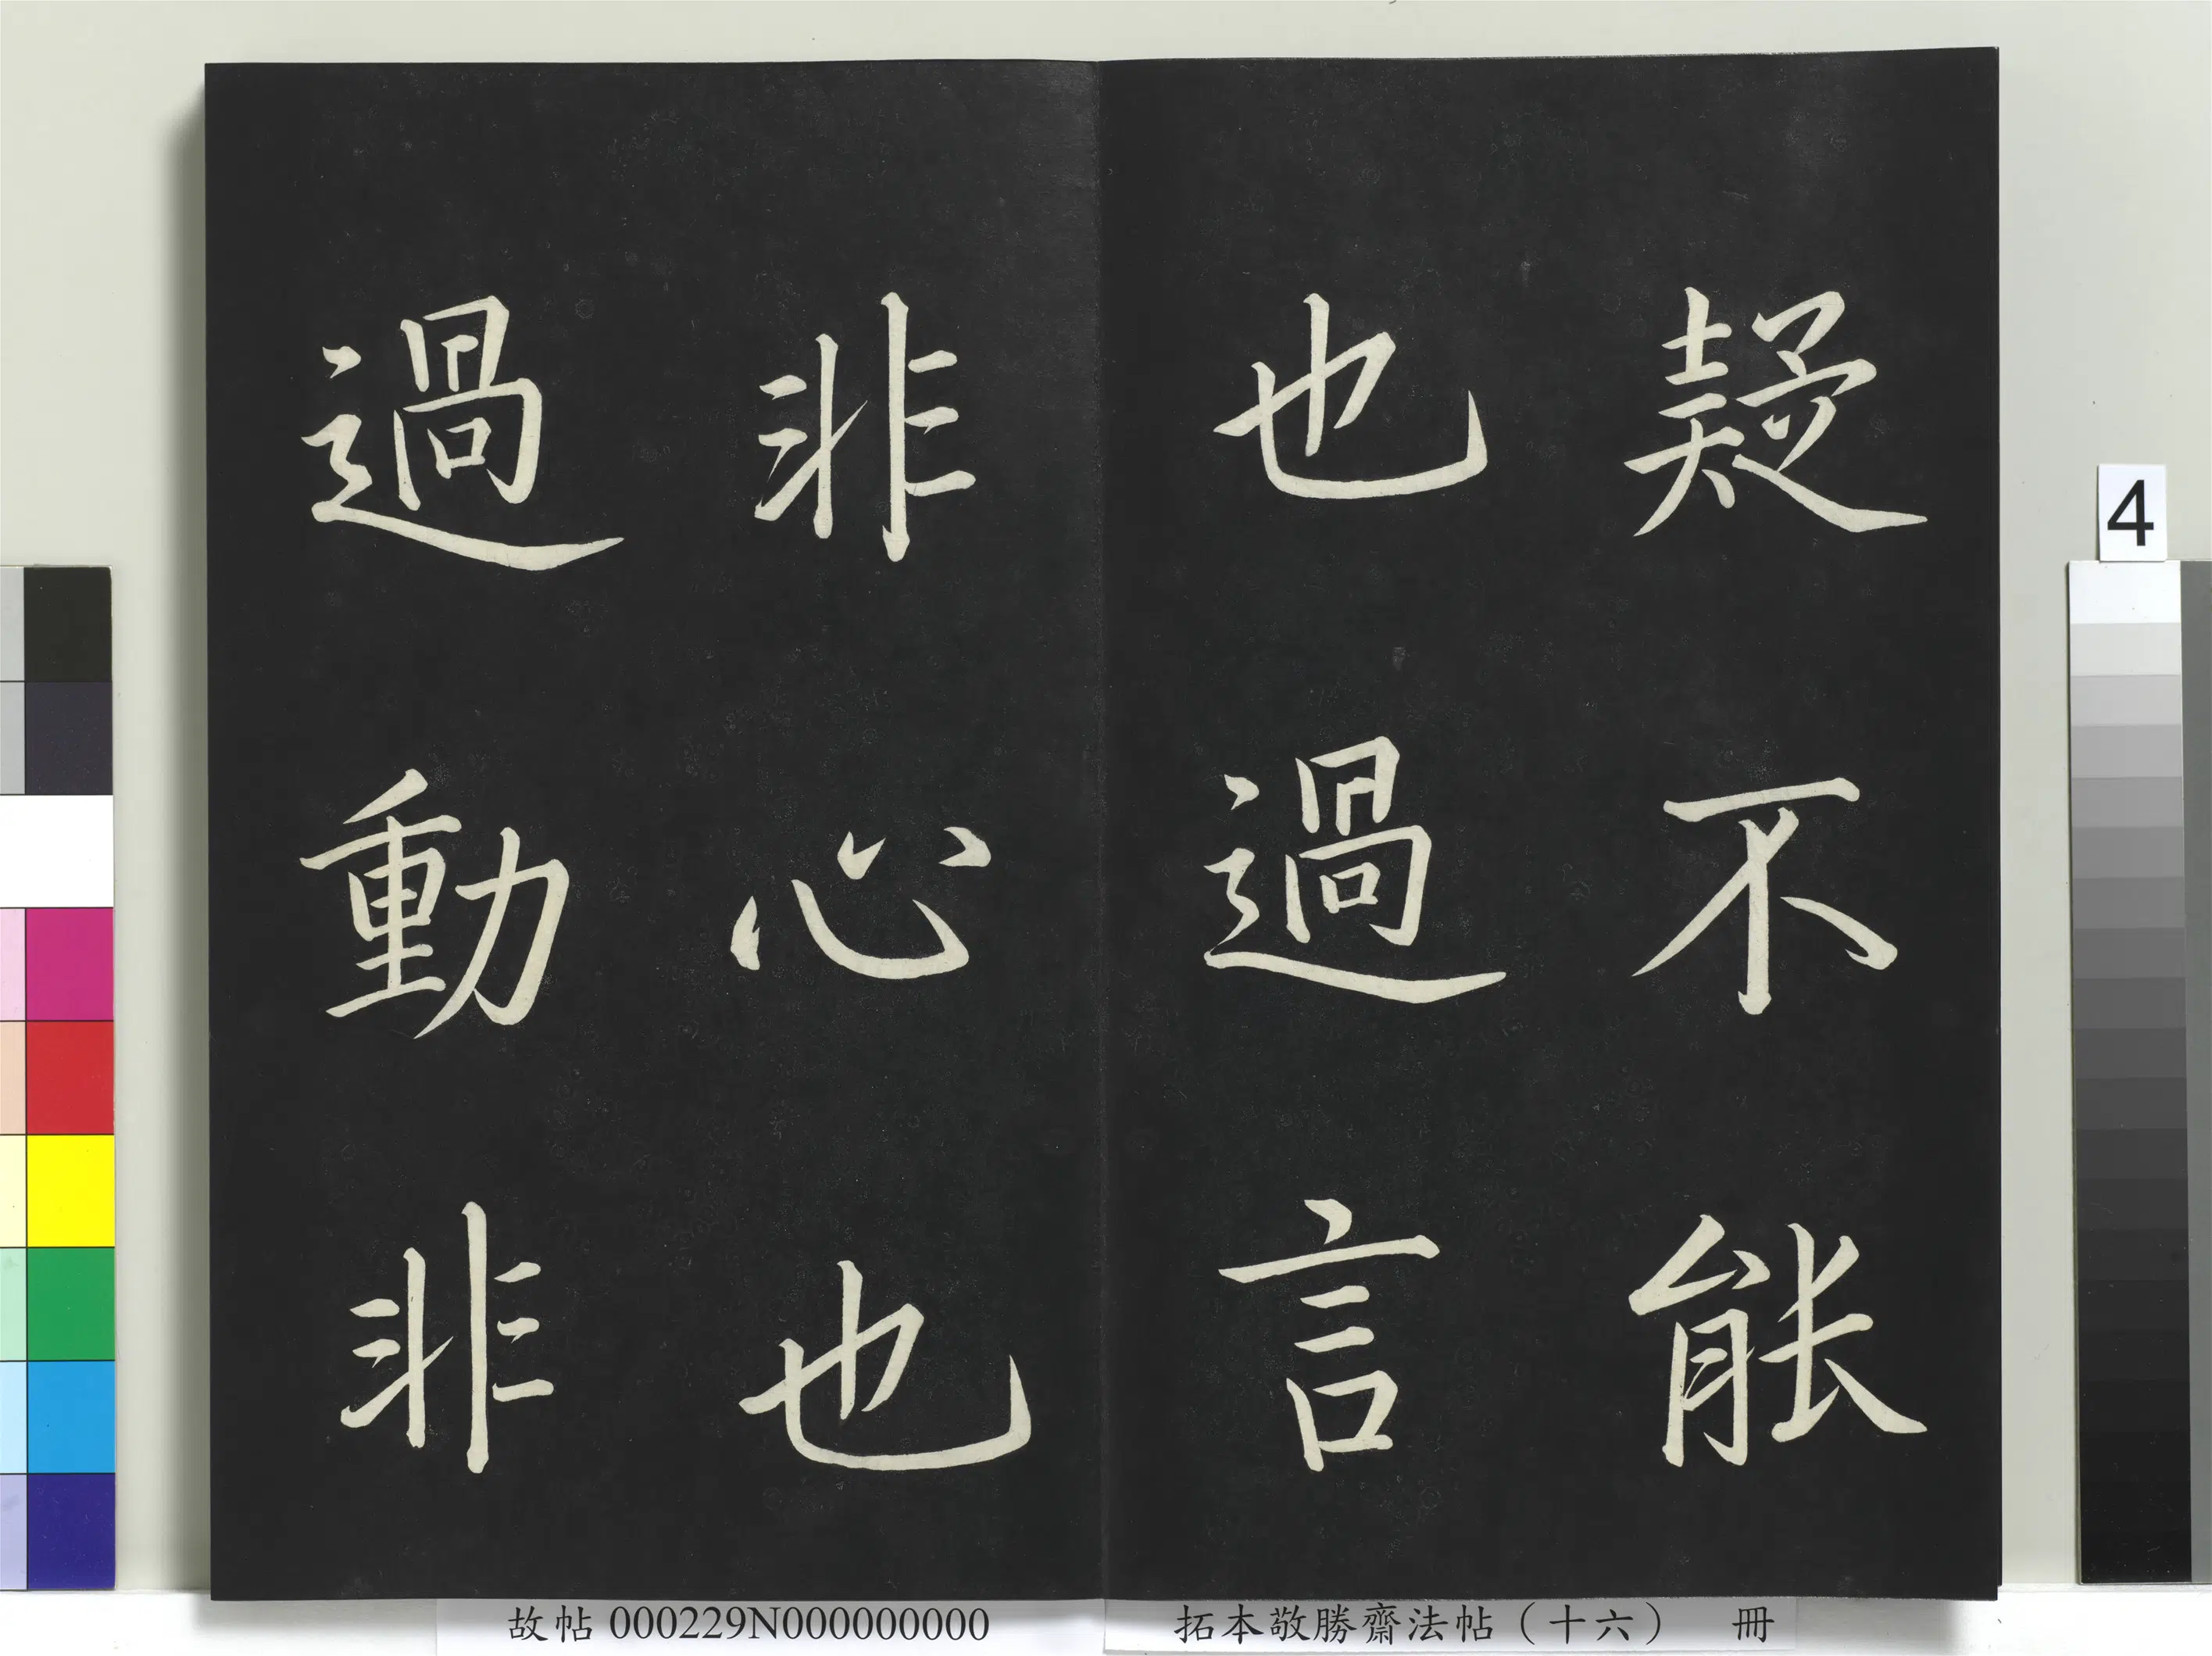 疑不能
也過言
非心也
過動非
4
故帖 000229N000000000
拓本敬勝齋法帖（十六） 冊